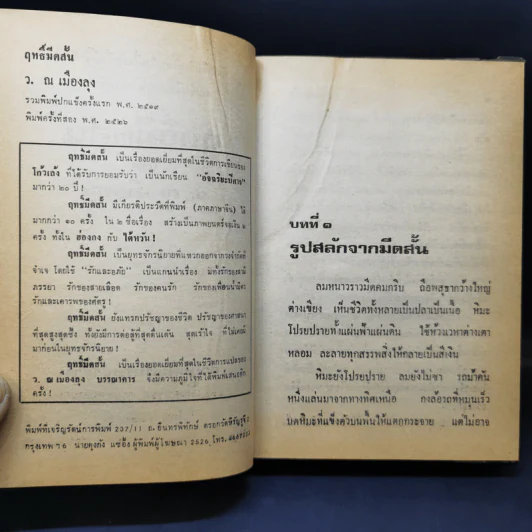 ฤทธิ์มีดสั้น
ว. ณ เมืองลุง
รวมพิมพ์ปกแข็งครั้งแรก พ.ศ. ๒๕๑๙
พิมพ์ครั้งที่สอง พ.ศ. ๒๕๒๖
ฤทธิ์มีดสั้น เป็นเรื่องยอดเยี่ยมที่สุดในชีวิตการเขียนของ
โก้วเล้ง ที่ได้รับการยอมรับว่า เป็นนักเขียน "อัจฉริยะปีศาจ"
มากว่า ๒๐ ปี!
ฤทธิ์มีดสั้น มีเกียรติประวัติที่พิมพ์ (ภาคภาษาจีน) ไม่
มากกว่า ๑๐ ครั้ง ใน ๒ ชื่อเรื่อง สร้างเป็นภาพยนตร์จอเงิน
ครั้ง ทั้งใน ฮ่องกง กับ ไต้หวัน!
ฤทธิ์มีดสั้น เป็นยุทธจักรนิยายที่แหวกออกจากวงจำกัด
จำเจ โดยใช้ "รักและอภัย" เป็นแกนนำเรื่อง มีทั้งรักของสามี
ภรรยา รักของสายเลือด รักของคนรัก รักของเพื่อนน้ำมิตร
รักและเคารพของศัตรู!
ฤทธิ์มีดสั้น ยังแทรกปรัชญาของชีวิต ปรัชญาของศาสนา
ที่สุดสูงสุดซึ้ง ทั้งยังมีการต่อสู้ที่สุดตื่นเต้น สุดเร้าใจ ที่ไม่เคยมี
มาก่อนในยุทธจักรนิยาย!
ฤทธิ์มีดสั้น เป็นเรื่องยอดเยี่ยมที่สุดในชีวิตการแปลของ
ว. ณ เมืองลุง บรรณาคาร จึงมีความภูมิใจที่ได้พิมพ์เสนออีก
ครั้ง!
พิมพ์ที่เจริญรัตน์การพิมพ์ 237/11 ถ.อินทรพิทักษ์ ตรอกวัดหิรัญรูจี
กรุงเทพฯ 6 นายคุงกัง แซ่อึ้ง ผู้พิมพ์ผู้โฆษณา 2526 โทร.
บทที่ ๑
รูปสลักจากมีดสั้น
ลมหนาวราวมีดคมกริบ ถือพสุธากว้างใหญ่
ต่างเขียง เห็นชีวิตทั้งหลายเป็นปลาเป็นเนื้อ หิมะ
โปรยปรายทั้งแผ่นฟ้าแผ่นดิน ใช้ห้วงเวหาต่างเตา
หลอม ละลายทุกสรรพสิ่งให้กลายเป็นสีเงิน
หิมะยังโปรยปราย ลมยังไม่ซา รถม้าคัน
หนึ่งแล่นมาจากทางทิศเหนือ กงล้อรถที่หมุนเร็ว
บดหิมะที่แข็งตัวบนพื้นให้แตกกระจาย แต่ไม่อาจ